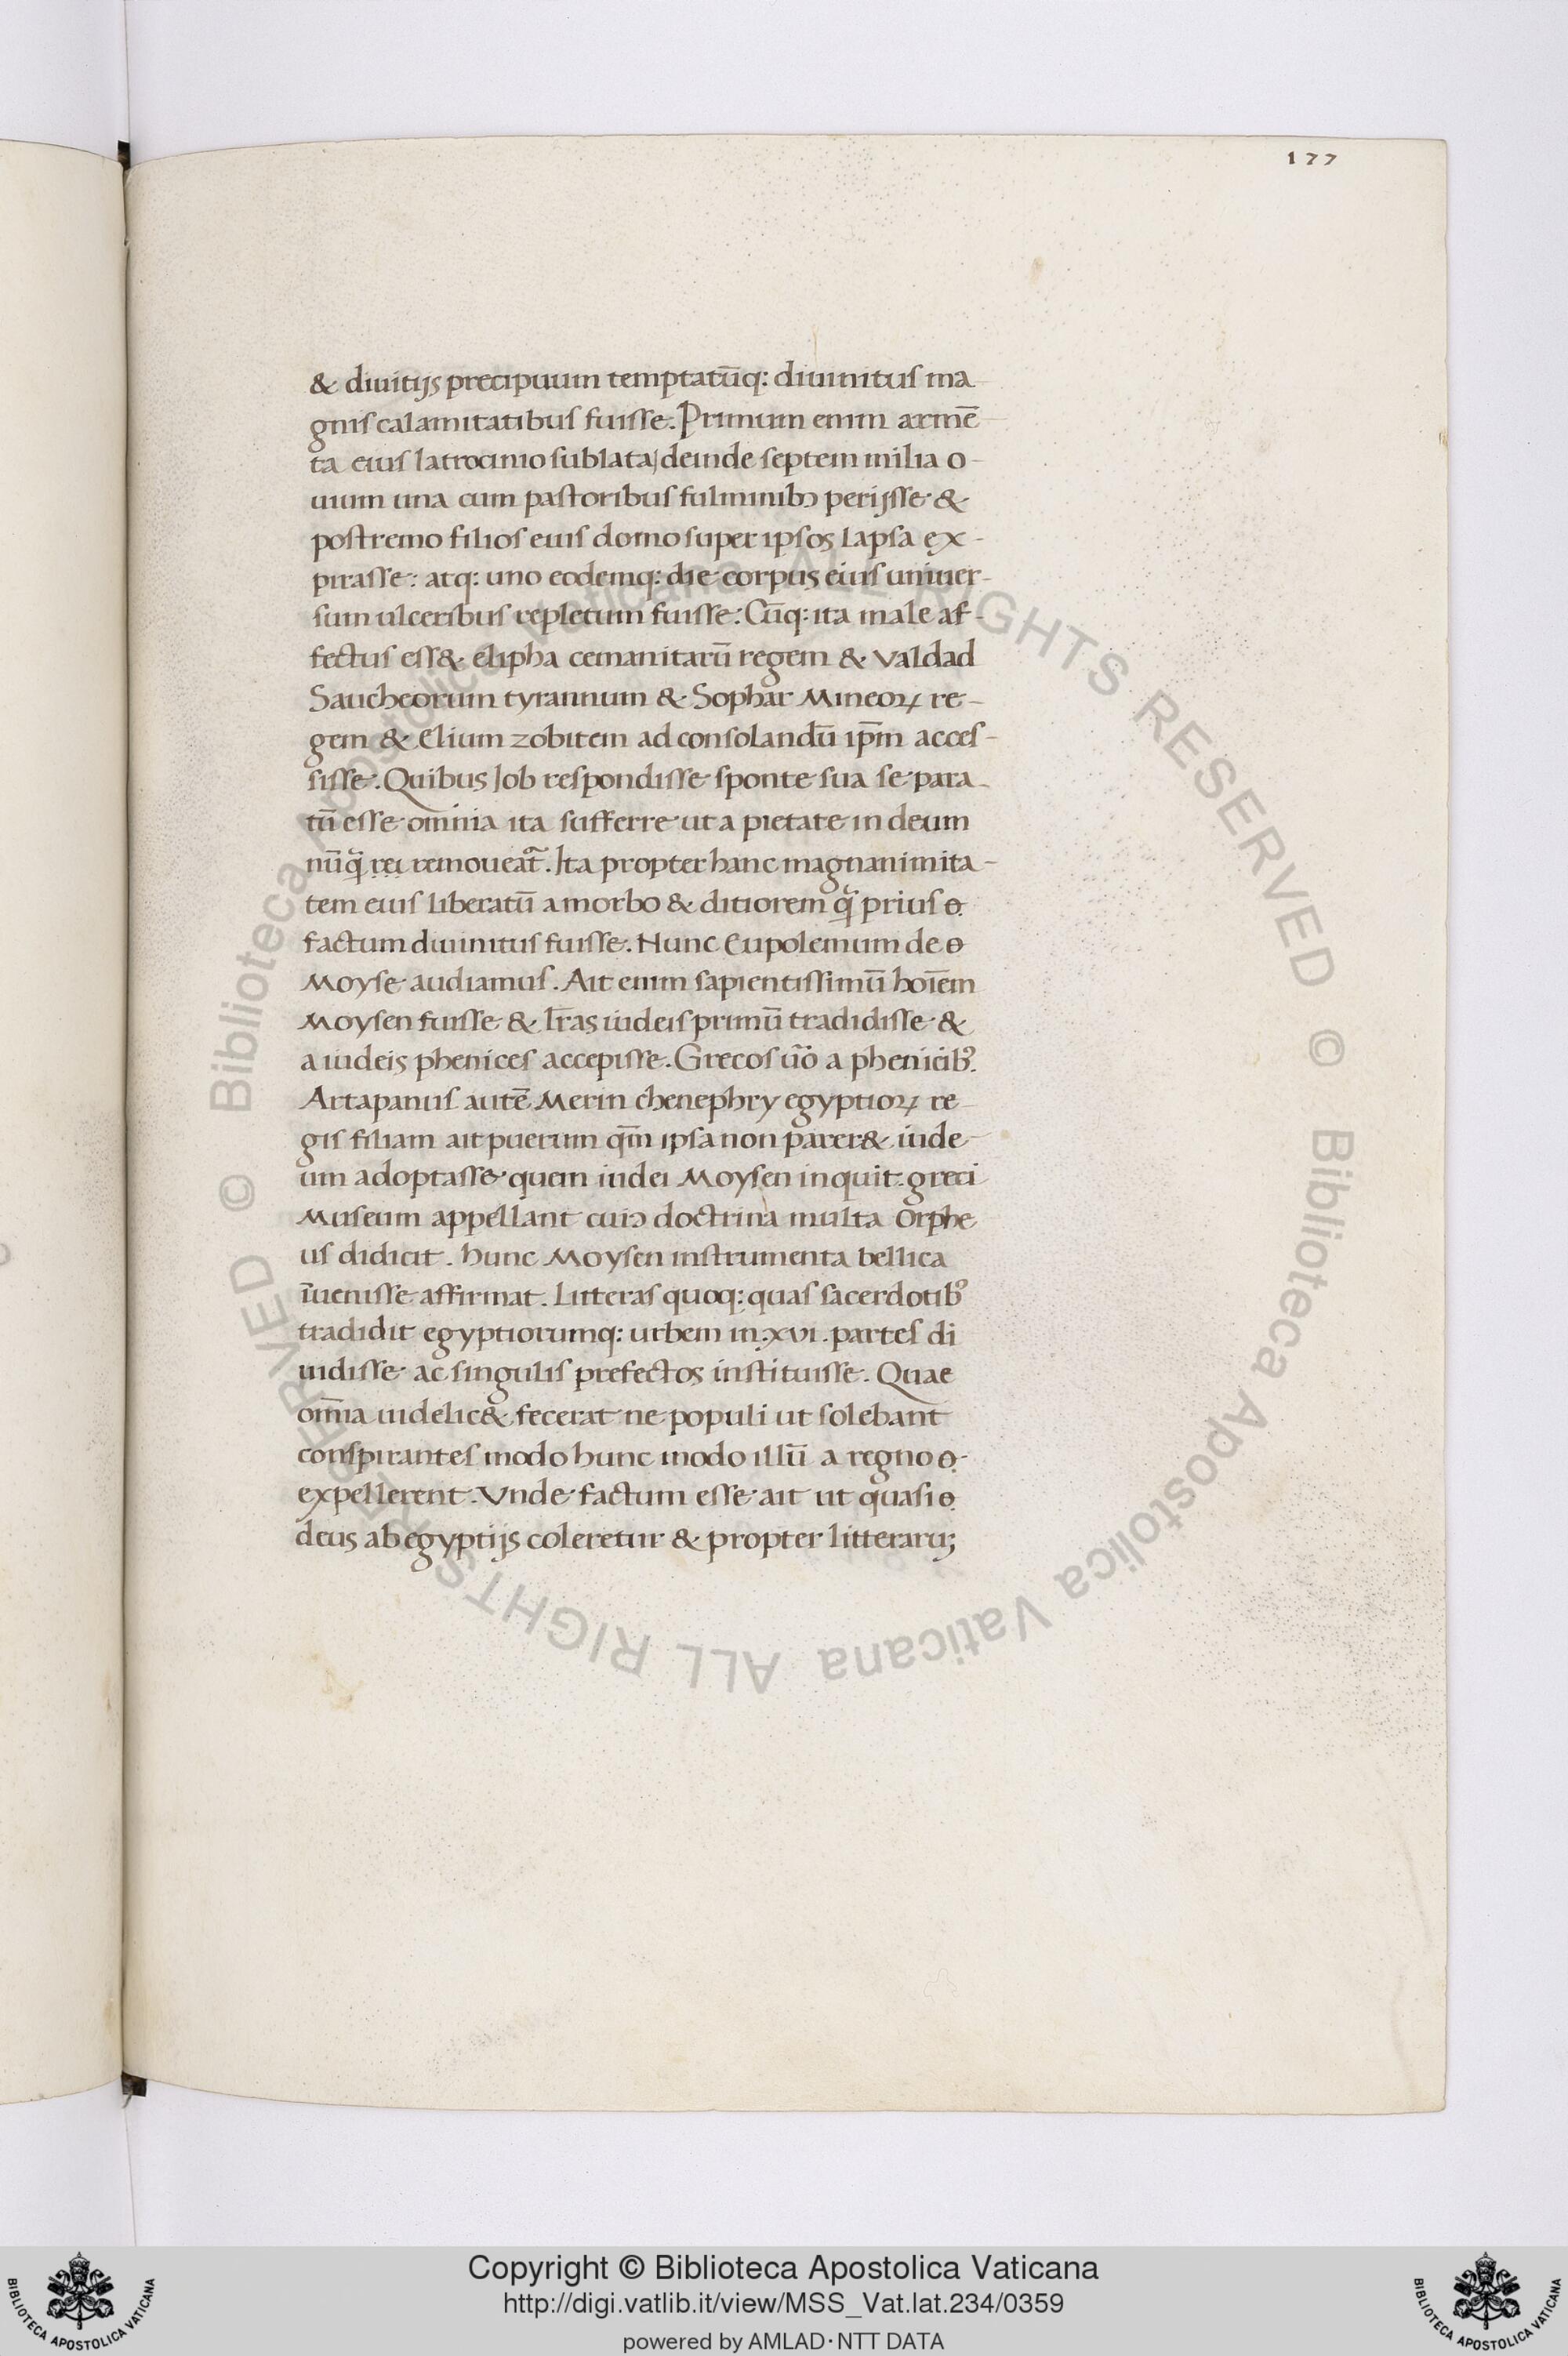 177
& diuitijs precipuum temptatūq: diuinitus ma
gnis calamitatibus fuisse. Primum enim armē
ta eius latrocinio sublata, deinde septem milia o-
uium una cum pastoribus fulminibꝰ perijsse &
postremo filios eius domo super ipsos lapsa ex-
pirasse: atq: uno eodemq: die corpus eius uniuer-
sum ulceribus repletum fuisse: Cūq: ita male af-
fectus ess& elipha cemanitarū regem & Valdad
Saucheorum tyrannum & Sophar Mineoꝝ re-
gem & Elium zobitem ad consolandū ip̄m acces-
sisse. Quibus Iob respondisse sponte sua se para-
tū esse omnia ita sufferre ut a pietate in deum
nūq̃ rei remoueat᷑. Ita propter hanc magnanimita-
tem eius liberatū a morbo & ditiorem q̃ prius ɵ
factum diuinitus fuisse. Nunc Eupolemum de ɵ
Moyse audiamus. Ait enim sapientissimū hoīem
Moysen fuisse & l̄ras iudeis primū tradidisse &
a iudeis phenices accepisse. Grecos ūo a phenicibꝰ.
Artapanus autē Merin chenephry egyptioꝝ re
gis filiam ait puerum qm̄ ipsa non parer& iude-
um adoptasse quem iudei Moysen inquit greci
Museum appellant cuiꝰ doctrina multa Orphe
us didicit. hunc Moysen instrumenta bellica
īuenisse affirmat. Litteras quoq: quas sacerdotibꝰ
tradidit egyptiorumq: urbem in .xvi. partes di
uidisse ac singulis prefectos instituisse. Quae
om̄ia uidelic& fecerat ne populi ut solebant
conspirantes modo hunc modo illū a regno ɵ
expellerent. Vnde factum esse ait ut quasi ɵ
deus ab egyptijs coleretur & propter litteraruꝫ
© Biblioteca Apostolica Vaticana ALL RIGHTS RESERVED © Biblioteca Apostolica Vaticana ALL RIGHTS RESERVED
Copyright © Biblioteca Apostolica Vaticana
http://digi.vatlib.it/view/MSS_Vat.lat.234/0359
powered by AMLAD·NTT DATA
BIBLIOTECA APOSTOLICA VATICANA
BIBLIOTECA APOSTOLICA VATICANA